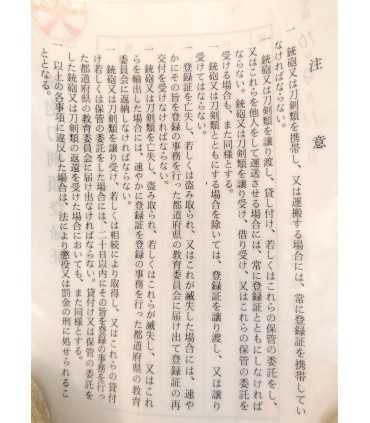 注意
一 銃砲又は刀剣類を携帯し、又は運搬する場合には、常に登録証を携帯してい
なければならない。
一 銃砲又は刀剣類を譲り渡し、貸し付け、若しくはこれらの保管の委託をし、
又はこれらを他人をして運送させる場合には、常に登録証とともにしなければ
ならない。銃砲又は刀剣類を譲り受け、借り受け、又はこれらの保管の委託を
受ける場合も、また同様とする。
一 銃砲又は刀剣類とともにする場合を除いては、登録証を譲り渡し、又は譲り
受けてはならない。
一 登録証を亡失し、若しくは盗み取られ、又はこれが滅失した場合には、速や
かにその旨を登録の事務を行った都道府県の教育委員会に届け出て登録証の再
交付を受けなければならない。
一 銃砲又は刀剣類を亡失し、盗み取られ、若しくはこれらが滅失し、又はこれ
らを輸出した場合には、速やかに登録証を登録の事務を行った都道府県の教育
委員会に返納しなければならない。
一 銃砲又は刀剣類を譲り受け、若しくは相続により取得し、又はこれらの貸付
け若しくは保管の委託をした場合には、二十日以内にその旨を登録の事務を行っ
た都道府県の教育委員会に届け出なければならない。貸付け又は保管の委託を
した銃砲又は刀剣類の返還を受けた場合においても、また同様とする。
一 以上の各事項に違反した場合は、法により懲役又は罰金の刑に処せられるこ
ととなる。